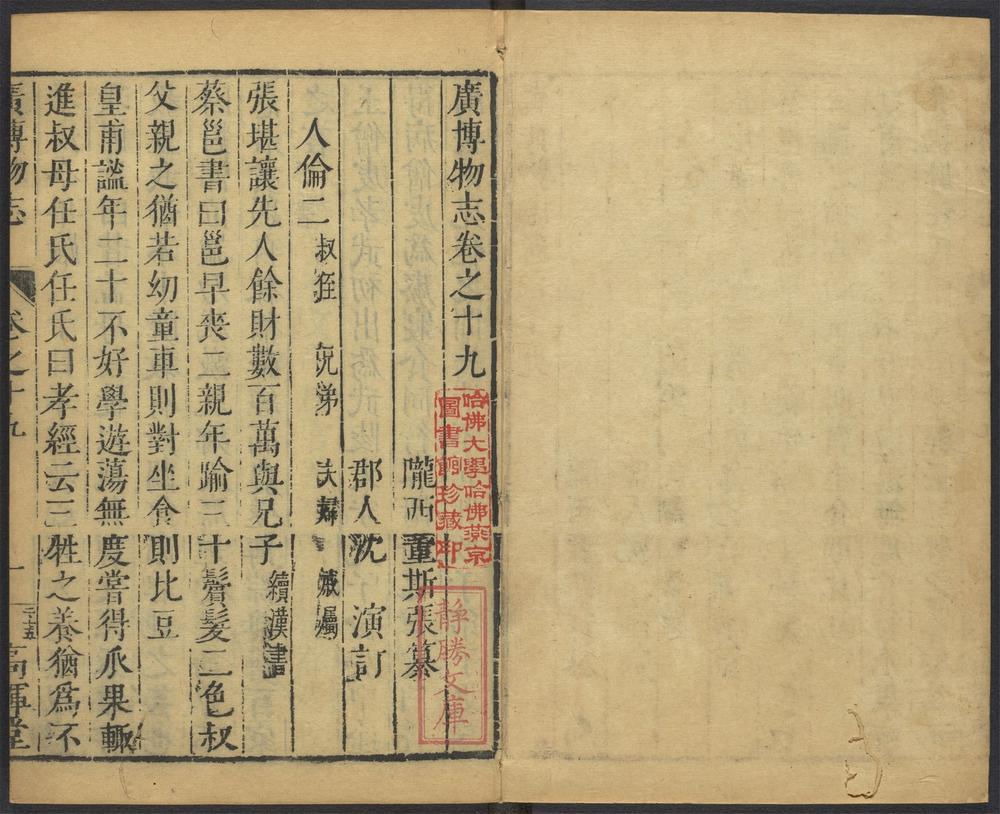 廣博物志卷之十九
隴西董斯張纂
郡人沈演訂
人倫二 叔姪 兄弟 夫婦 戚屬
張堪讓先人餘財數百萬與兄子續漢書
蔡邕書曰邕早喪二親年踰三十鬢髮二色叔
父親之猶若幼童車則對坐食則比豆
皇甫謐年二十不好學遊蕩無度嘗得瓜果輙
進叔母任氏任氏曰孝經云三牲之養猶爲不
廣博物志 卷之十九 一 高暉堂
哈佛大學哈佛燕京
圖書館珍藏印
靜勝文庫